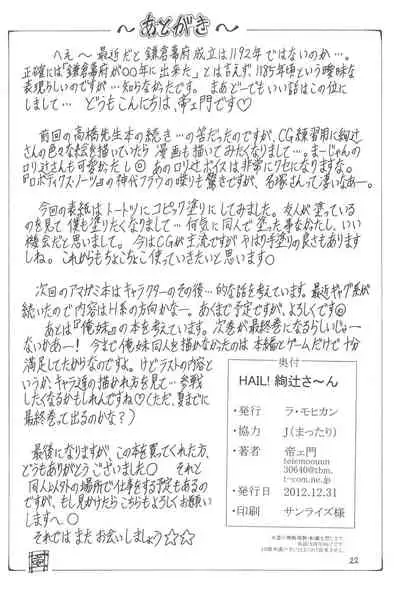 ～あとがき～
へぇ～最近だと鎌倉幕府成立は1192年ではないのか…。
正確には「鎌倉幕府が○○年に出来た」とは言えず、1185年頃という曖昧な
表現らしいのですが…知らなかったです。まあどーでもいい話はこの位
にしまして…どうもこんにちは、帝ェ門です♡
前回の高橋先生本の続き…の筈だったのですが、CG練習用に絢辻
さんの色々な絵を描いていたら漫画も描いてみたくなりまして…。まーじゃんの
ロリ辻さんも可愛かたし あのロリ辻ボイスは非常にクセになりますな。
『ロボティクス・ノーツ』の神代フラウの喋りも驚きですが、名塚さんって凄いなあー。
今回の表紙はトートツにコピック塗りにしてみました。友人が塗っている
のを見て僕も塗りたくなりまして…何気に同人で塗った事なかたし、いい
機会だと思いまして。今はCGが主流ですがやはり手塗りの良さもあります
しね。これからもちょこちょこ使っていきたいと思います○
次回のアマガミ本はキャラクターのその後…的な話を考えています。最近ギャグ系が
続いたので内容はH系の方向かなー。あくまで予定ですが、よろしくです
あとは『俺妹』の本を考えています。次巻が最終巻になるらしいじゃー
ないかあー！今まで俺妹同人を描かなかったのは本編とゲームだけで十分
満足してたからなのですよ。けどラストの内容と
いうか、キャラ達の描かれ方を見て…参戦
したくなるかもしれんですね♡(ただ、夏までに
最終巻って出るのかな？)
最後になりますが、この本を買ってくれた方、
どうもありがとうございました○ それと
同人以外の場所で仕事をする予定もあるの
ですが、もし見かけたらこちらもよろしくお願い
しますへ○
それではまたお会いしましょう☆☆☆
奥付
HAIL! 絢辻さ～ん
・発行 ラ・モヒカン
・協力 J(まったり)
・著者 帝ェ門
teiemonnn
30640@tbm.
t-com.ne.jp
・発行日 2012.12.31
・印刷 サンライズ様
22